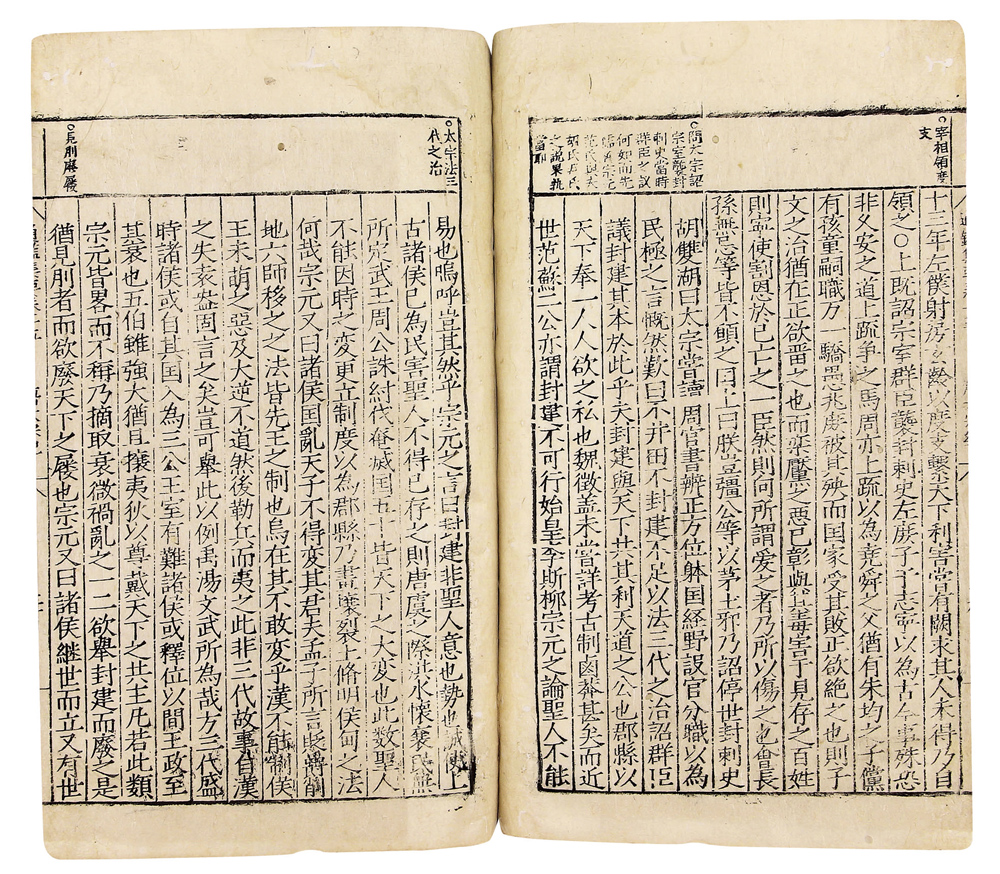 ○宰相領度
支
十三年左僕射房玄齡以度支繫天下利害嘗有闕求其人未得乃自
領之○上既詔宗室群臣襲封刺史左庶子于志寧以為古今事殊恐
非久安之道上疏爭之馬周亦上疏以為堯舜之父猶有朱均之子儻
有孩童嗣職万一驕愚兆庶被其殃而国家受其敗正欲絶之也則子
文之治猶在正欲畱之也而欒黶之悪已彰與其毒害于見存之百姓
則寧使割恩於已亡之一臣然則向所謂爱之者乃所以傷之也會長
孫無忌等皆不願之国上曰朕豈彊公等以茅土邪乃詔停世封刺史
○問太宗詔
宗室襲封
刺史當時
群臣之议
何如而先
儒宗元
范氏與夫
胡氏
之說果孰
當耶
胡雙湖曰太宗嘗讀周官書辨正方位躰国経野設官分職以為
民極之言慨然歎曰不井田不封建不足以法三代之治詔群臣
議封建其本於此乎夫封建與天下共其利天道之公也郡縣以
天下奉一人人欲之私也魏徵盖未嘗詳考古制鹵莽甚矣而近
世范蘇二公亦謂封建不可行始皇李斯柳宗元之論聖人不能
○太宗法三
代之治
易也嗚呼豈其然乎宗元之言曰封建非聖人意也勢也誠以上
古諸侯已為民害聖人不得已存之則唐虞之際洪水懷襄民無
所定武王周公誅紂伐奄滅国五十皆天下之大变也此数聖人
不能因時之变更立制度以為郡縣乃畫壤裂土脩明侯甸之法
何哉宗元又曰諸侯国亂天子不得变其君夫孟子所言貶爵削
地六師移之之法皆先王之制也烏在其不敢变乎漢不能制侯
王未萌之惡及大逆不道然後勒兵而夷之此非三代故事自漢
之失亥盎固言之矣豈可舉此以例禹湯文武所為哉方三代盛
時諸侯或自其国入為三公王室有難諸侯或釋位以間王政至
其衰也五伯雖強大猶且攘夷狄以尊戴天下之共主凡若此類
宗元皆畧而不稱乃摘取衰微禍亂之一二欲舉封建而廢之是
猶見刖者而欲廢天下之屨也宗元又曰諸侯継世而立又有世
○見刖廢屨